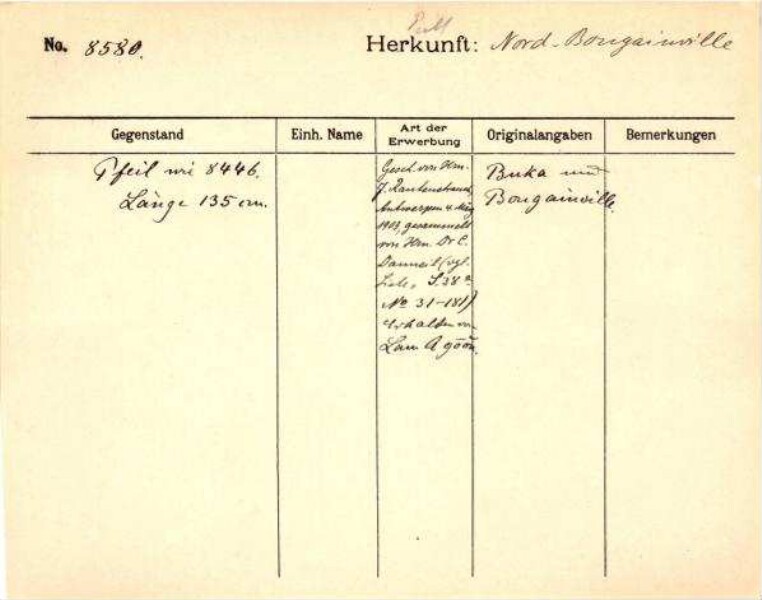 No. 8580. Herkunft: Nord-Bougainville
Gegenstand Einh. Name Art der Erwerbung Originalangaben Bemerkungen
Pfeil wie 8446.
Länge 135 cm.
Gesch. von Hrn.
J. Rautenstrauch,
Antwerpen 4. März
1903, gesammelt
von Hrn. Dr. C.
Danneil (vgl.
S. 38a
No 31-181)
erhalten von
Buka und
Bougainville.